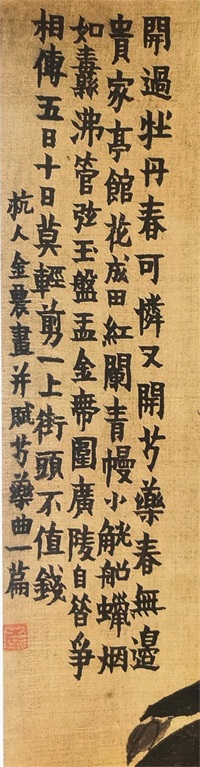 開過牡丹春可憐又開芍藥春無邊
貴家亭館花成田紅闌青幔小觥船蠟烟
如霧縣沸管弦玉盤盂金帶圍廣陵自昔爭
相傳五日十日莫輕剪一上街頭不值錢
杭人金農畫并賦芍藥曲一篇